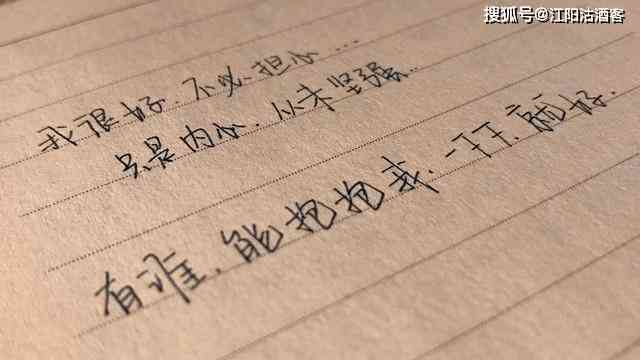 搜狐号@江阳沽酒客
我很好.不必担心...
只是内心.从未坚强..
有谁.能抱抱我.一下下.就好.